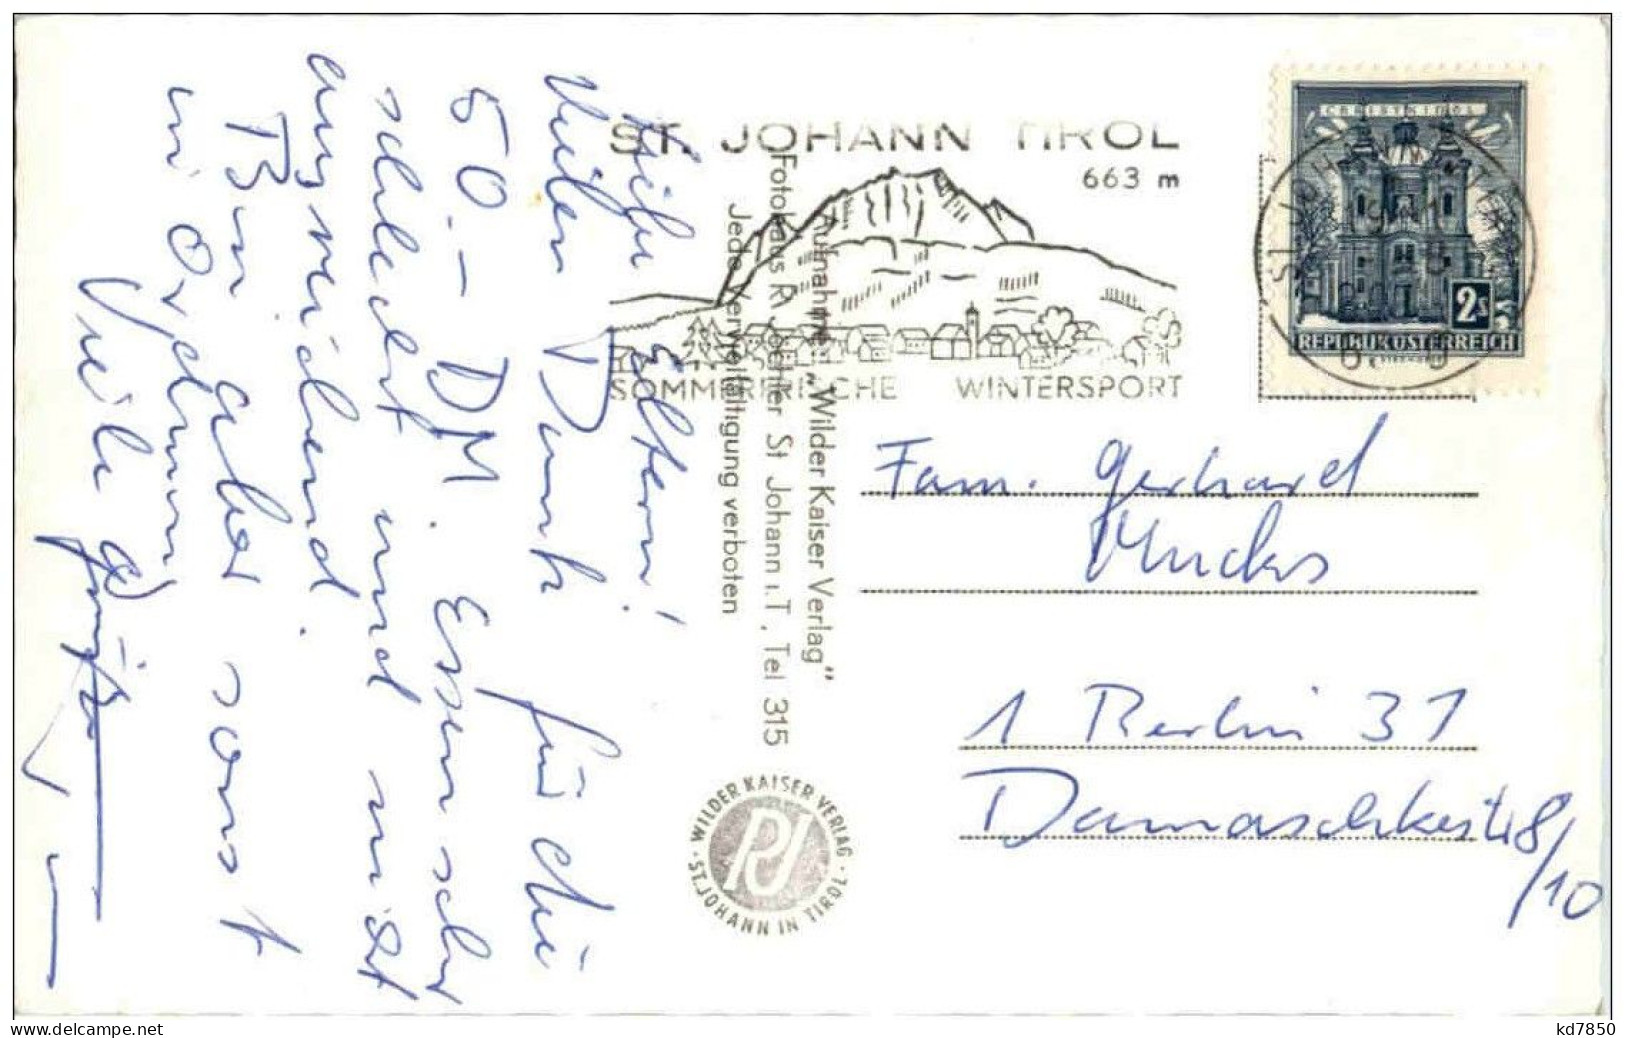 Liebe Eltern!
Vielen Dank für die
50.- DM. Essen sehr
schlecht und nicht
ausreichend.
Bin aber sonst
in Ordnung
Viele Grüße
ST. JOHANN TIROL
663 m
SOMMERFRISCHE WINTERSPORT
Aufnahme: „Wilder Kaiser Verlag"
Fotohaus R. Jöchler St Johann i.T, Tel 315
Jede Vervielfältigung verboten
WILDER KAISER VERLAG
· ST. JOHANN IN TIROL ·
CHRISTKINDL
2S
REPUBLIK ÖSTERREICH
ST. JOHANN IN TIROL
Fam. Gerhard
1 Berlin 31
Damaschkestr 8/10
www.delcampe.net
kd7850